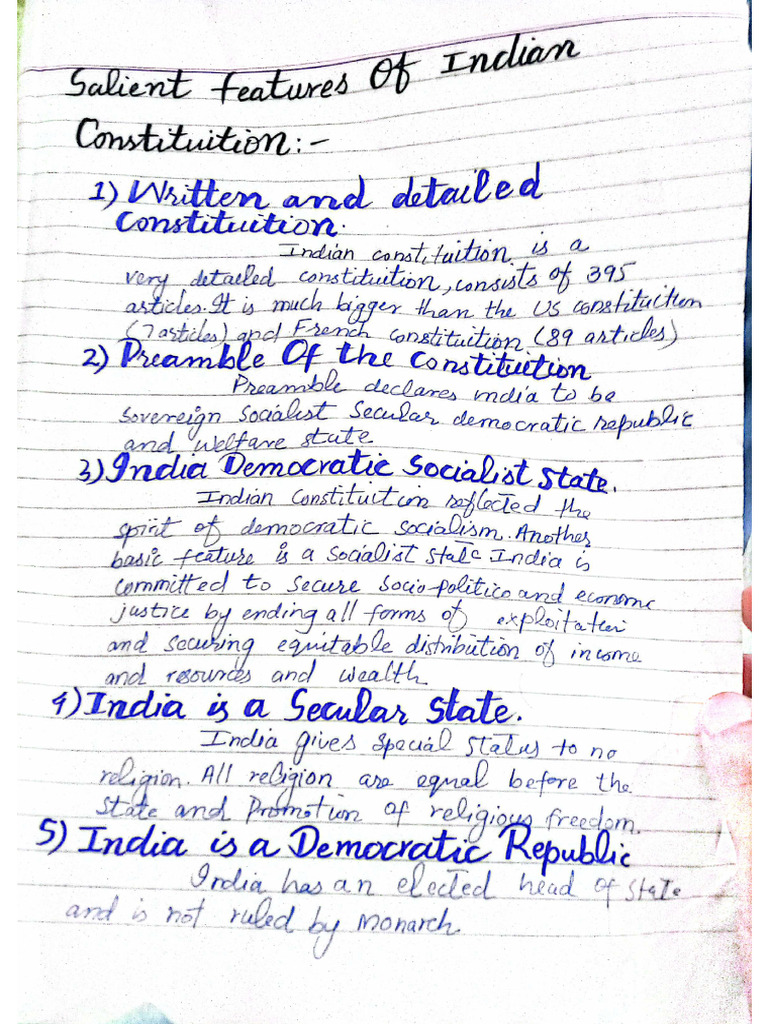 Salient features Of Indian
Constituition:-
1) Written and detailed
Constituition.
Indian constituition is a
very detailed constituition, consists of 395
articles. It is much bigger than the US constituition
(7 articles) and French constituition (89 articles)
2) Preamble Of the Constituition
Preamble declares india to be
sovereign socialist secular democratic republic
and welfare state
3) India Democratic Socialist State.
Indian Constituition reflected the
spirit of democratic socialism. Another
basic feature is a socialist state India is
committed to secure socio-politico and economic
justice by ending all forms of exploitation
and securing equitable distribution of income
and resources and wealth.
4) India is a Secular State.
India gives special status to no
religion. All religion are equal before the
state and promotion of religious freedom.
5) India is a Democratic Republic
India has an elected head of state
and is not ruled by monarch.